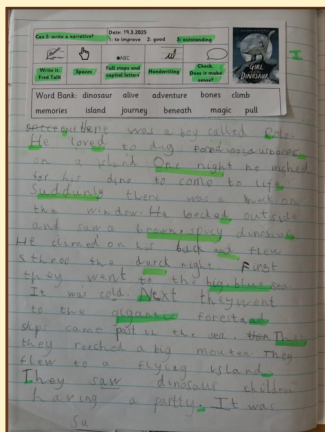 Can I: write a narrative?
Date: 19.3.2025
1: to improve 2: good 3: outstanding
Write it: Fred Talk
Spaces
ABC
Full stops and capital letters
Handwriting
Check. Does it make sense?
GIRL
DINOSAUR
I
Word Bank: dinosaur alive adventure bones climb
memories island journey beneath magic pull
there was a boy called
He loved to dig
on a iland One night he wished
for his dino to come to life.
Suddunly there was a bump on
the window. He looked outside
and saw a brown spicy dinosaur
He climed on his back and flew
throo the durck night. First
they want to the big blue sea
It was cold. Next they went
to the gigantic forest and
ships came past in the sea. Then
they reeched a big mounten. They
flew to a flying island.
They saw dinosaur children
having a party. It was
Su